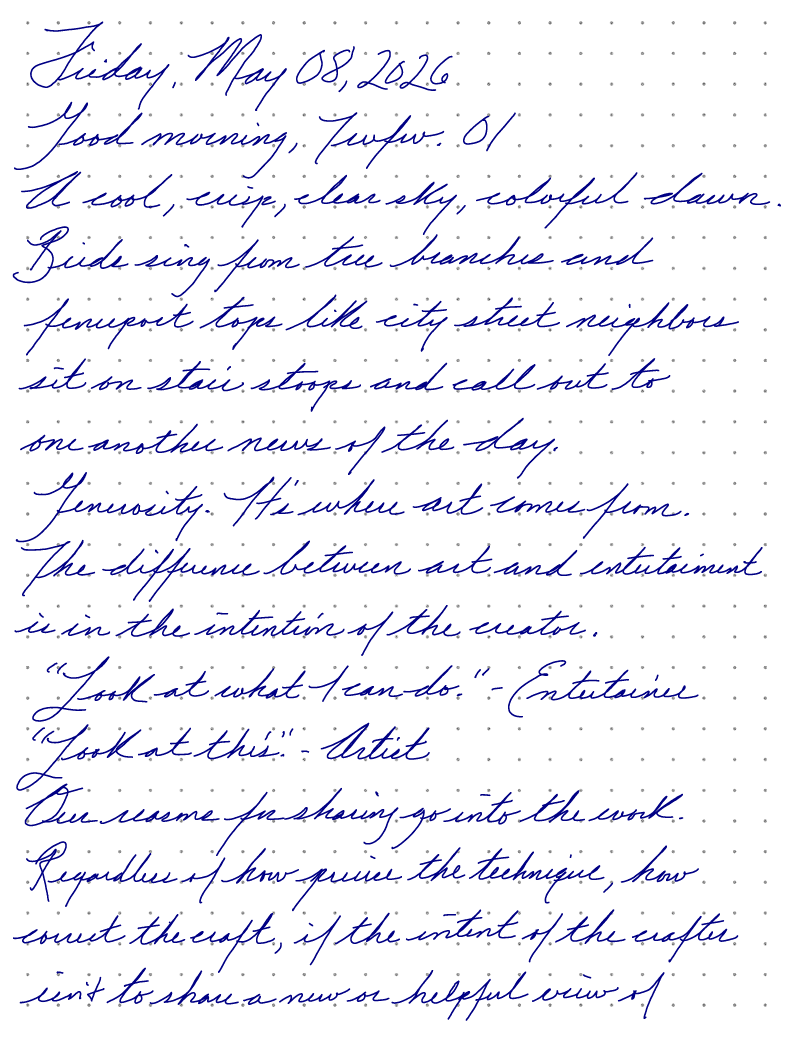 Friday, May 08, 2026
Good morning, Twfw. 01
A cool, crisp, clear sky, colorful dawn.
Birds sing from tree branches and
fencepost tops like city street neighbors
sit on stair stoops and call out to
one another news of the day.
Generosity. It's where art comes from.
The difference between art and entertaiment
is in the intention of the creator.
"Look at what I can do." - Entertainer
"Look at this." - Artist
Our reasons for sharing go into the work.
Regardless of how precise the technique, how
correct the craft, if the intent of the crafter
isn't to share a new or helpful view of